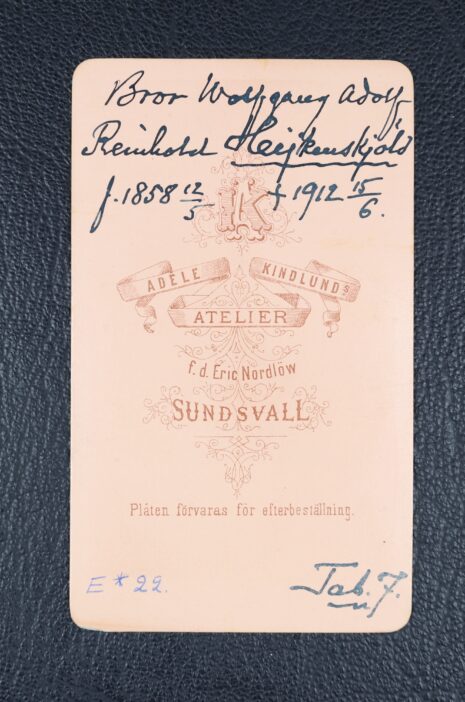 Bror Wolfgang Adolf
Reinhold Heijkenskjöld
f. 1858 12/5 † 1912 15/6.
K
ADÈLE KINDLUNDS
ATELIER
f.d. Eric Nordlöw
SUNDSVALL
Plåten förvaras för efterbeställning.
E * 22.
Tab. 7.